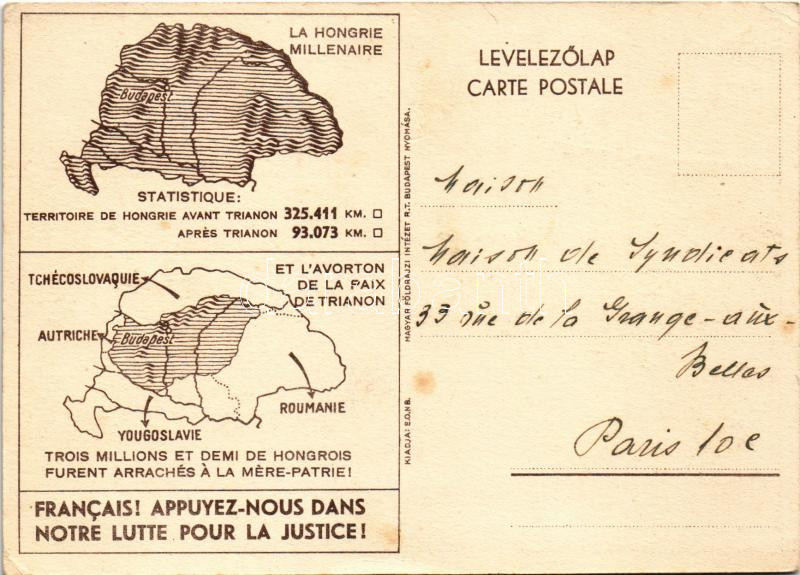 LA HONGRIE
MILLENAIRE
Budapest
STATISTIQUE:
TERRITOIRE DE HONGRIE AVANT TRIANON 325.411 KM. □
APRÈS TRIANON 93.073 KM. □
ET L'AVORTON
DE LA PAIX
DE TRIANON
TCHÉCOSLOVAQUIE
AUTRICHE
Budapest
ROUMANIE
YOUGOSLAVIE
TROIS MILLIONS ET DEMI DE HONGROIS
FURENT ARRACHÉS À LA MÈRE-PATRIE!
FRANÇAIS! APPUYEZ-NOUS DANS
NOTRE LUTTE POUR LA JUSTICE!
KIADJA: E.O.N.B. MAGYAR FÖLDRAJZI INTÉZET R.T. BUDAPEST NYOMÁSA.
LEVELEZŐLAP
CARTE POSTALE
Maison
Maison de Syndicats
33 rue de la Grange-aux-
Belles
Paris 10e